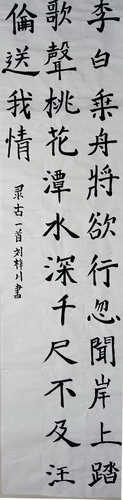 李白乘舟將欲行忽聞岸上踏
歌聲桃花潭水深千尺不及汪
倫送我情
录古一首刘梓川書